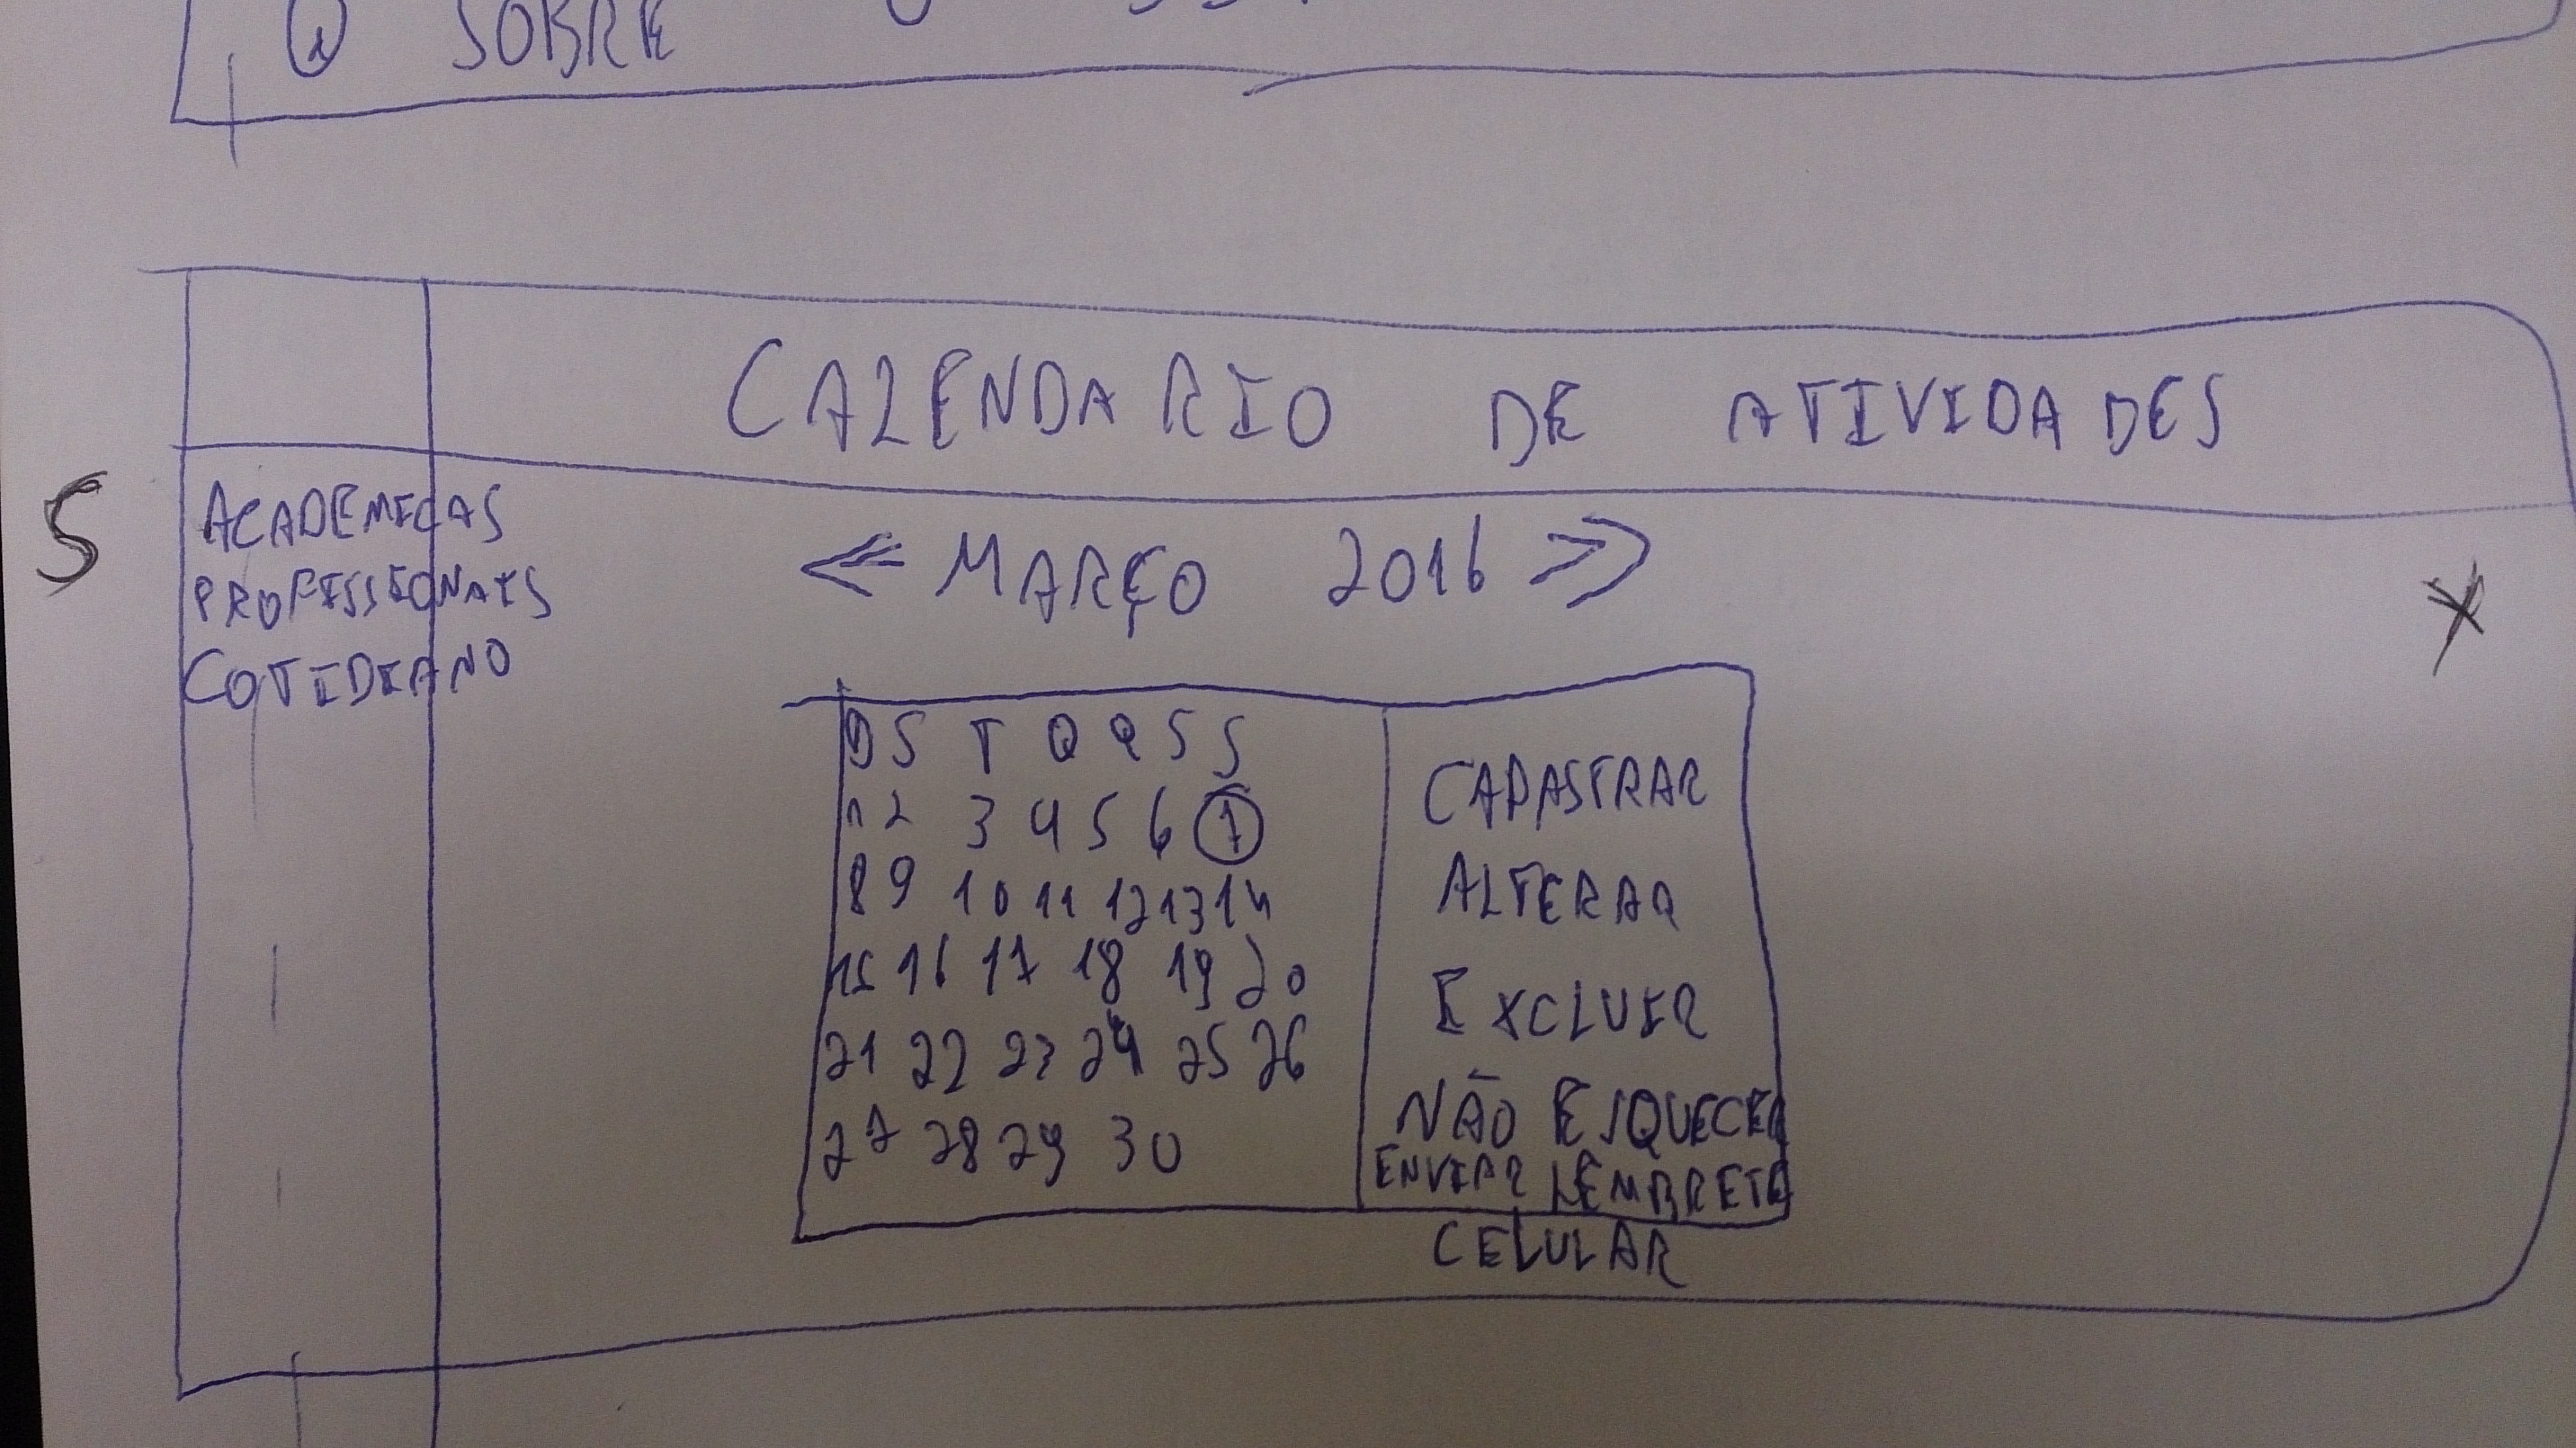 SOBRE
CALENDARIO DE ATIVIDADES
5
ACADEMICAS
PROFISSIONAIS
COTIDIANO
<< MARÇO 2016 >>
X
D S T Q Q S S
1 2 3 4 5 6 7
8 9 10 11 12 13 14
15 16 17 18 19 20
21 22 23 24 25 26
27 28 29 30
CADASTRAR
ALTERAR
EXCLUIR
NÃO ESQUECER
ENVIAR LEMBRETE
CELULAR